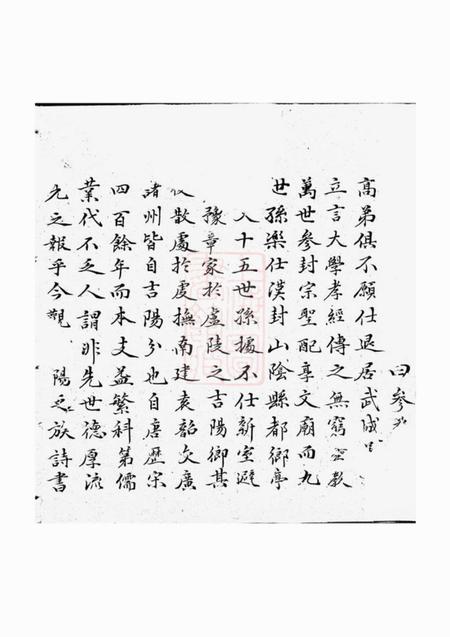 曰參
高弟俱不願仕退居武城
立言大學孝經傳之無窮
萬世參封宗聖配享文廟而九
世孫樂仕漢封山陰縣都鄉亭
十五世孫據不仕新室避
豫章家於廬陵之吉陽鄉其
散處於虔撫南建袁韶交廣
諸州皆自吉陽分也自唐歷宋
四百餘年而本支益繁科第儒
業代不乏人謂非先世德厚流
光之報乎今觀 陽之族詩書